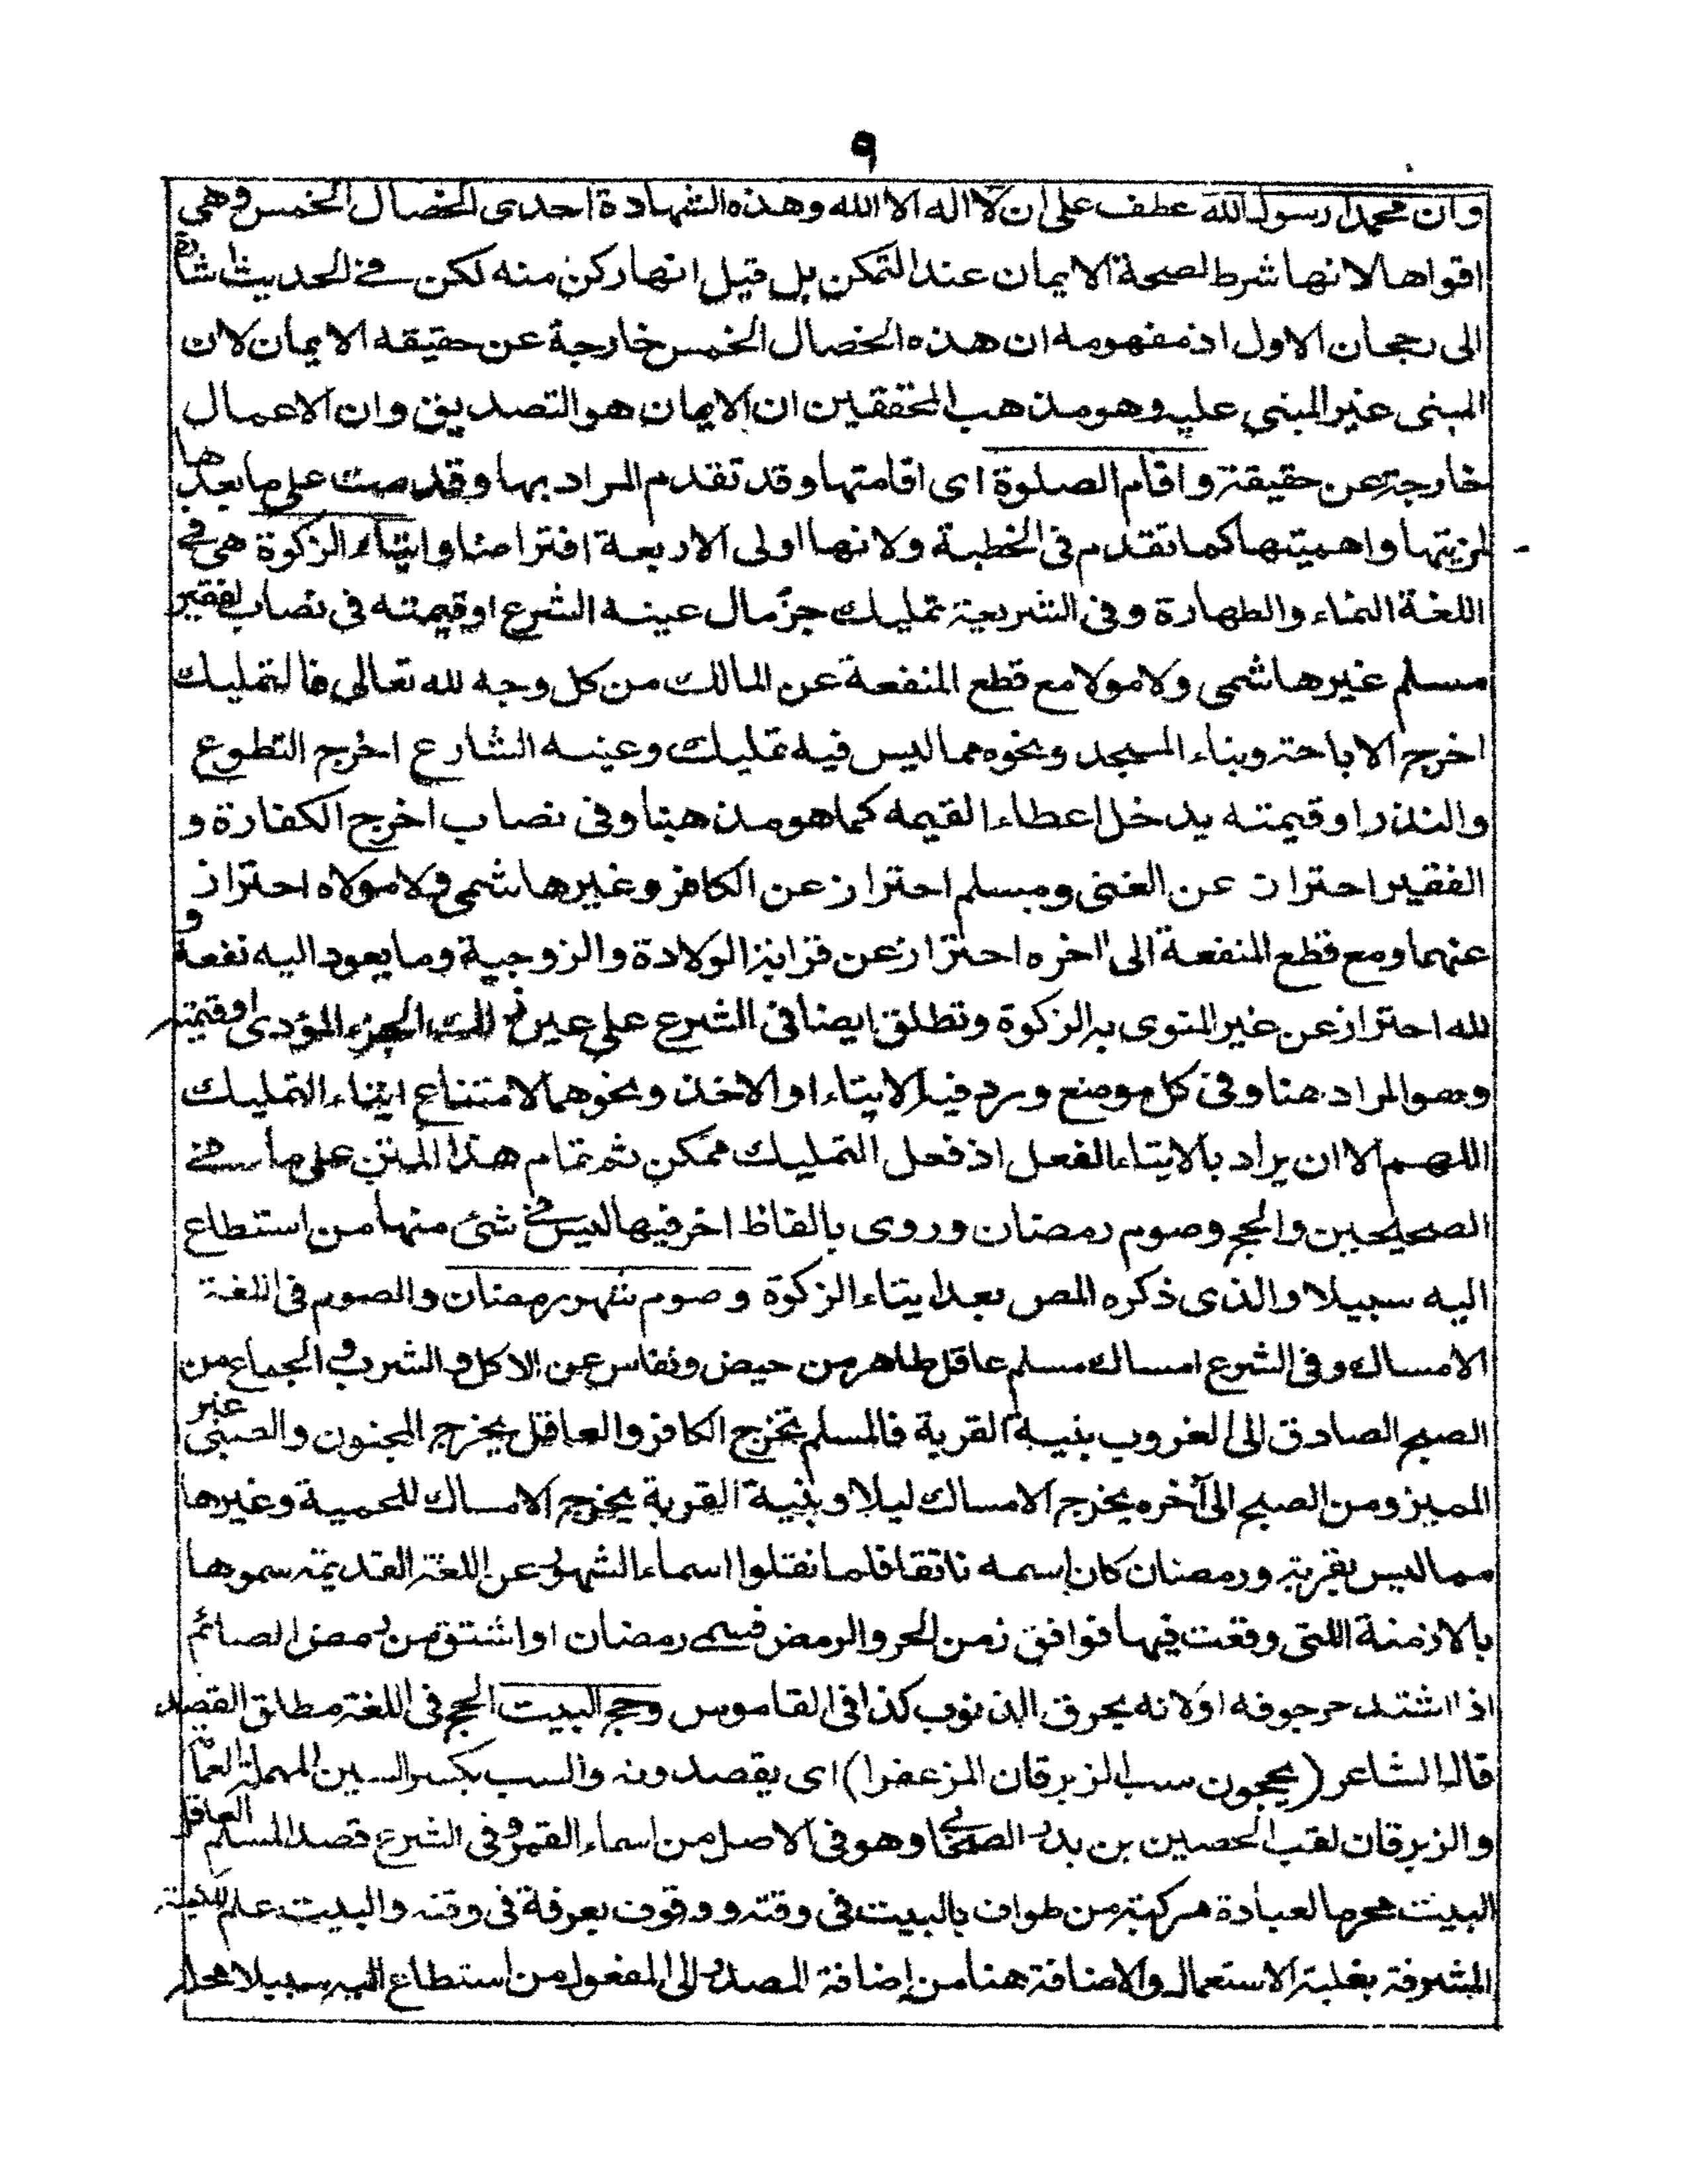 ٩
وان محمدا رسول الله عطف على ان لا اله الا الله وهذه الشهادة احدى الخصال الخمس وهى
اقواها لانها شرط لصحة الايمان عند التمكن بل قيل انها ركن منه لكن فى الحديث اشارة
الى رجحان الاول اذ مفهومه ان هذه الخصال الخمس خارجة عن حقيقه الايمان لان
المبنى غير المبنى عليه وهو مذهب المحققين ان الايمان هو التصديق وان الاعمال
خارجة عن حقيقة واقام الصلوة اى اقامتها وقد تقدم المراد بها وقدمت على ما بعدها
لمزيتها واهميتها كما تقدم فى الخطبة ولانها اولى الاربعة افتراضا وايتاء الزكوة هى فى
اللغة النماء والطهارة وفى الشريعة تمليك جزء مال عينه الشرع او قيمته فى نصاب لفقير
مسلم غير هاشمى ولا مولا مع قطع المنفعة عن المالك من كل وجه لله تعالى فالتمليك
اخرج الاباحة وبناء المسجد ونحوه مما ليس فيه تمليك وعينه الشارع اخرج التطوع
والنذر او قيمته يدخل اعطاء القيمه كما هو مذهبنا وفى نصاب اخرج الكفارة و
الفقير احتراز عن الغنى ومسلم احتراز عن الكافر وغير هاشمى ولا مولاه احتراز
عنهما ومع قطع المنفعة الى اخره احتراز عن قرابة الولادة والزوجية وما يعود اليه نفعه و
لله احتراز عن غير المنوى به الزكوة وتطلق ايضا فى الشرع على عين ذلك الجزء المؤدى او قيمته
وهو المراد هنا وفى كل موضع ورد فيه الايتاء او الاخذ ونحوهما لامتناع ايتاء التمليك
اللهم الا ان يراد بالايتاء الفعل اذ فعل التمليك ممكن ثم تمام هذا المتن على ما فى
الصحيحين والحج وصوم رمضان وروى بالفاظ اخر فيها ليس فى شئ منها من استطاع
اليه سبيلا والذى ذكره المص بعد ايتاء الزكوة وصوم شهر رمضان والصوم فى اللغة
الامساك وفى الشرع امساك مسلم عاقل طاهر من حيض ونفاس عن الاكل والشرب والجماع من
الصبح الصادق الى الغروب بنية القربة فالمسلم يخرج الكافر والعاقل يخرج المجنون والصبى غير
المميز ومن الصبح الى آخره يخرج الامساك ليلا وبنية القربة يخرج الامساك للحمية وغيرها
مما ليس بقربة ورمضان كان اسمه ناتقا فلما نقلوا اسماء الشهور عن اللغة القديمة سموها
بالازمنة اللتى وقعت فيها فوافق زمن الحر والرمض فسمى رمضان او اشتق من رمض الصائم
اذا اشتد حر جوفه او لانه يحرق الذنوب كذا فى القاموس وحج البيت الحج فى اللغة مطلق القصد
قال الشاعر (يحجون سب الزبرقان المزعفرا) اى يقصدونه والسب بكسر السين المهملة العمامة
والزبرقان لقب الحصين بن بدر الصحابى وهو فى الاصل من اسماء القمر وفى الشرع قصد المسلم العاقل
البيت محرما لعبادة مركبة من طواف بالبيت فى وقته ووقوف بعرفة فى وقته والبيت علم للكعبة
المشرفة بغلبة الاستعمال والاضافة هنا من اضافة المصدر الى المفعول من استطاع اليه سبيلا محله